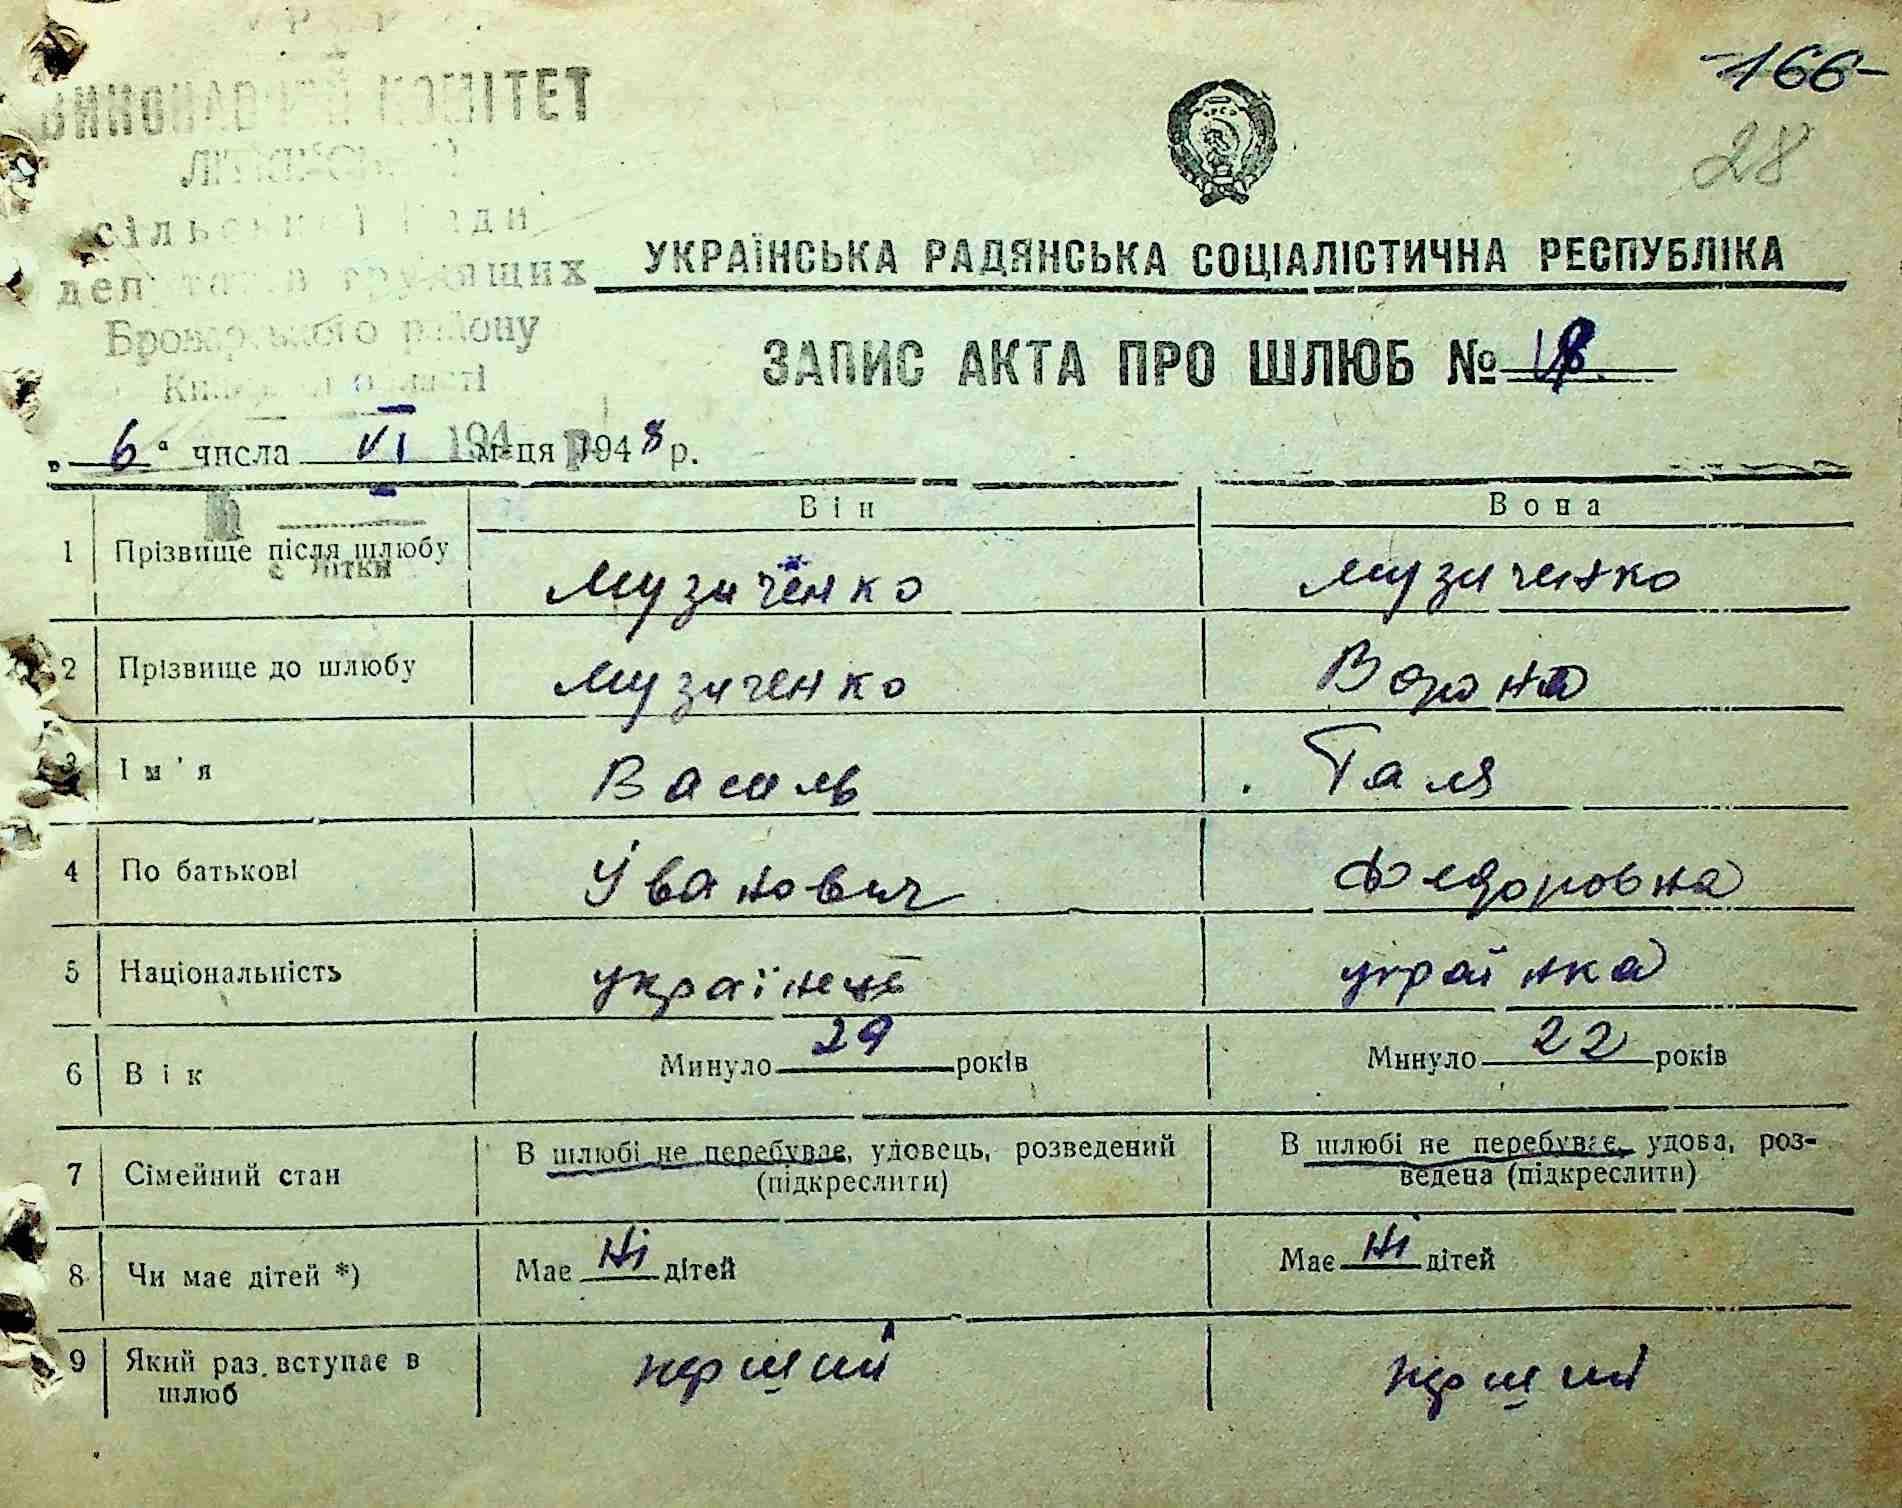 -166-
28
ВИКОНАВЧИЙ КОМІТЕТ
сільської Ради
депутатів трудящих
Броварського району
Київської області
194 р
с Літки
УКРАЇНСЬКА РАДЯНСЬКА СОЦІАЛІСТИЧНА РЕСПУБЛІКА
ЗАПИС АКТА ПРО ШЛЮБ №
„ 6 " числа VI м-ця 1948 р.
Він Вона
1 Прізвище після шлюбу Музиченко Музиченко
2 Прізвище до шлюбу Музиченко Ворона
3 Ім'я Василь Галя
4 По батькові Іванович Федоровна
5 Національність українець українка
6 Вік Минуло 29 років Минуло 22 років
7 Сімейний стан В шлюбі не перебуває, удовець, розведений В шлюбі не перебуває, удова, роз-
(підкреслити) ведена (підкреслити)
8 Чи має дітей *) Має Ні дітей Має Ні дітей
9 Який раз вступає в перший перший
шлюб